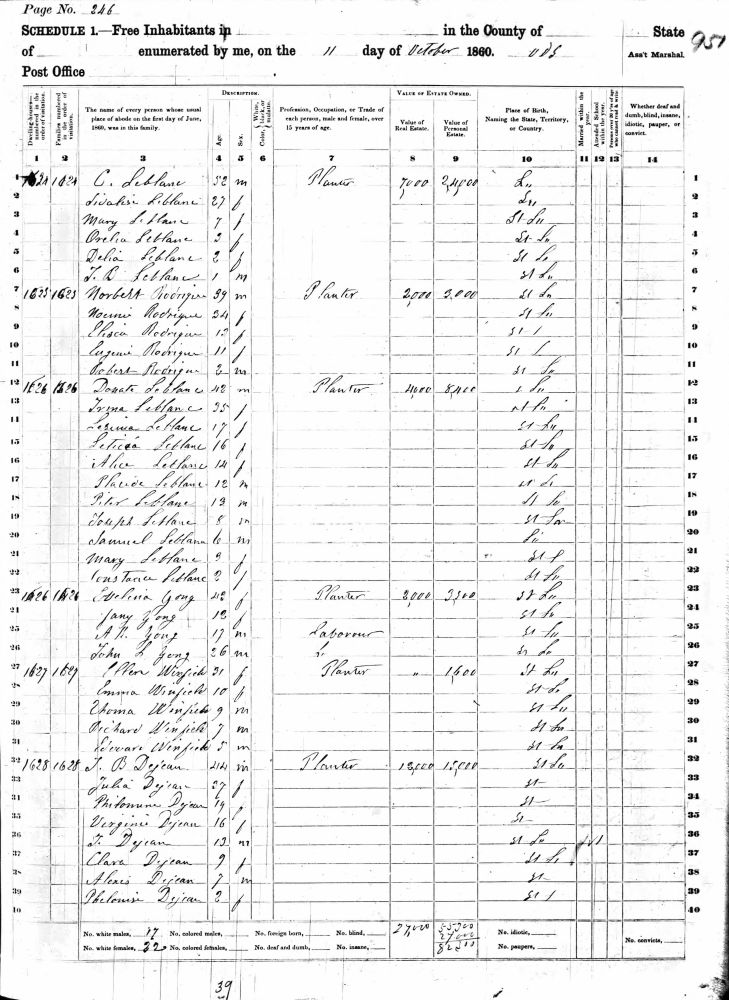 Page No. 246
SCHEDULE 1.—Free Inhabitants in in the County of State 951
of enumerated by me, on the 11 day of October 1860. Ass't Marshal.
Post Office
DESCRIPTION. VALUE OF ESTATE OWNED.
Dwelling-houses—numbered in the order of visitation. Families numbered in the order of visitation. The name of every person whose usual place of abode on the first day of June, 1860, was in this family. Age. Sex. Color, White, black, or mulatto. Profession, Occupation, or Trade of each person, male and female, over 15 years of age. Value of Real Estate. Value of Personal Estate. Place of Birth, Naming the State, Territory, or Country. Married within the year. Attended School within the year. Persons over 20 y'rs of age who cannot read & write. Whether deaf and dumb, blind, insane, idiotic, pauper, or convict.
1 2 3 4 5 6 7 8 9 10 11 12 13 14
1 1624 1624 C. Leblanc 52 m Planter 7000 24,000 La 1
2 Leblanc 27 f La 2
3 Mary Leblanc 7 f St La 3
4 Orelia Leblanc 3 f St La 4
5 Delia Leblanc 2 f St La 5
6 T. B Leblanc 1 m St La 6
7 1625 1625 Norbert Rodrigue 39 m Planter 2,000 3,000 St La 7
8 Noemie Rodrigue 34 f St La 8
9 Elisca Rodrigue 13 f St 9
10 Eugenie Rodrigue 11 f St 10
11 Robert Rodrigue 2 m St La 11
12 1626 1626 Donate Leblanc 42 m Planter 4,000 8,400 La 12
13 Irma Leblanc 35 f St La 13
14 Leblanc 17 f St La 14
15 Leticia Leblanc 16 f St La 15
16 Alice Leblanc 14 f St La 16
17 Placide Leblanc 12 m St La 17
18 Peter Leblanc 12 m St La 18
19 Joseph Leblanc 8 m St La 19
20 Samuel Leblanc 6 m La 20
21 Mary Leblanc 3 f St 21
22 Constance Leblanc 2 f St La 22
23 1626 1626 Evelina Yong 42 f Planter 2,000 3,500 St La 23
24 Jany Yong 12 f St La 24
25 A. R. Yong 17 m Labourer St La 25
26 John L Yong 26 m St La 26
27 1627 1627 Ellen Winfield 31 f Planter " 1,600 St La 27
28 Emma Winfield 10 f St La 28
29 Thoma Winfield 9 m St La 29
30 Richard Winfield 7 m St La 30
31 Edward Winfield 5 m St La 31
32 1628 1628 J. B Dejean 44 m Planter 12,000 15,000 St La 32
33 Julia Dejean 37 f St 33
34 Philomine Dejean 19 f St 34
35 Virginie Dejean 16 f St 35
36 F. Dejean 13 m St La 1 36
37 Clara Dejean 9 f St La 37
38 Alexis Dejean 7 m St 38
39 Phelonise Dejean 2 f St 39
40 40
No. white males, 17 No. colored males, No. foreign born, No. blind, 27,000 55,500 No. idiotic,
27,000
No. white females, 22 No. colored females, No. deaf and dumb, No. insane, 82500 No. paupers, No. convicts,
39